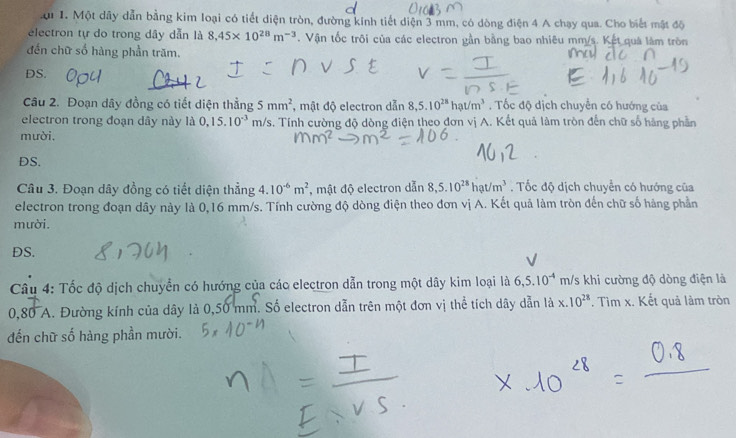 d 0,003 m
1. Một dây dẫn bằng kim loại có tiết diện tròn, đường kính tiết diện 3 mm, có dòng điện 4 A chạy qua. Cho biết mật độ
electron tự do trong dây dẫn là 8,45×10²⁸ m⁻³. Vận tốc trôi của các electron gần bằng bao nhiêu mm/s. Kết quả làm tròn
đến chữ số hàng phần trăm.
ĐS.
I = n v S E v = I / n S E
E = 1,6 10⁻¹⁹
Câu 2. Đoạn dây đồng có tiết diện thẳng 5 mm², mật độ electron dẫn 8,5.10²⁸ hạt/m³. Tốc độ dịch chuyển có hướng của
electron trong đoạn dây này là 0,15.10⁻³ m/s. Tính cường độ dòng điện theo đơn vị A. Kết quả làm tròn đến chữ số hàng phần
mười.
mm² → m² = 106
ĐS. 10,2
Câu 3. Đoạn dây đồng có tiết diện thẳng 4.10⁻⁶ m², mật độ electron dẫn 8,5.10²⁸ hạt/m³. Tốc độ dịch chuyển có hướng của
electron trong đoạn dây này là 0,16 mm/s. Tính cường độ dòng điện theo đơn vị A. Kết quả làm tròn đến chữ số hàng phần
mười.
ĐS. 8,704
v
Câu 4: Tốc độ dịch chuyển có hướng của các electron dẫn trong một dây kim loại là 6,5.10⁻⁴ m/s khi cường độ dòng điện là
0,80 A. Đường kính của dây là 0,50 mm. Số electron dẫn trên một đơn vị thể tích dây dẫn là x.10²⁸. Tìm x. Kết quả làm tròn
đến chữ số hàng phần mười.
n = I / E . v S
x . 10²⁸ = 0.8